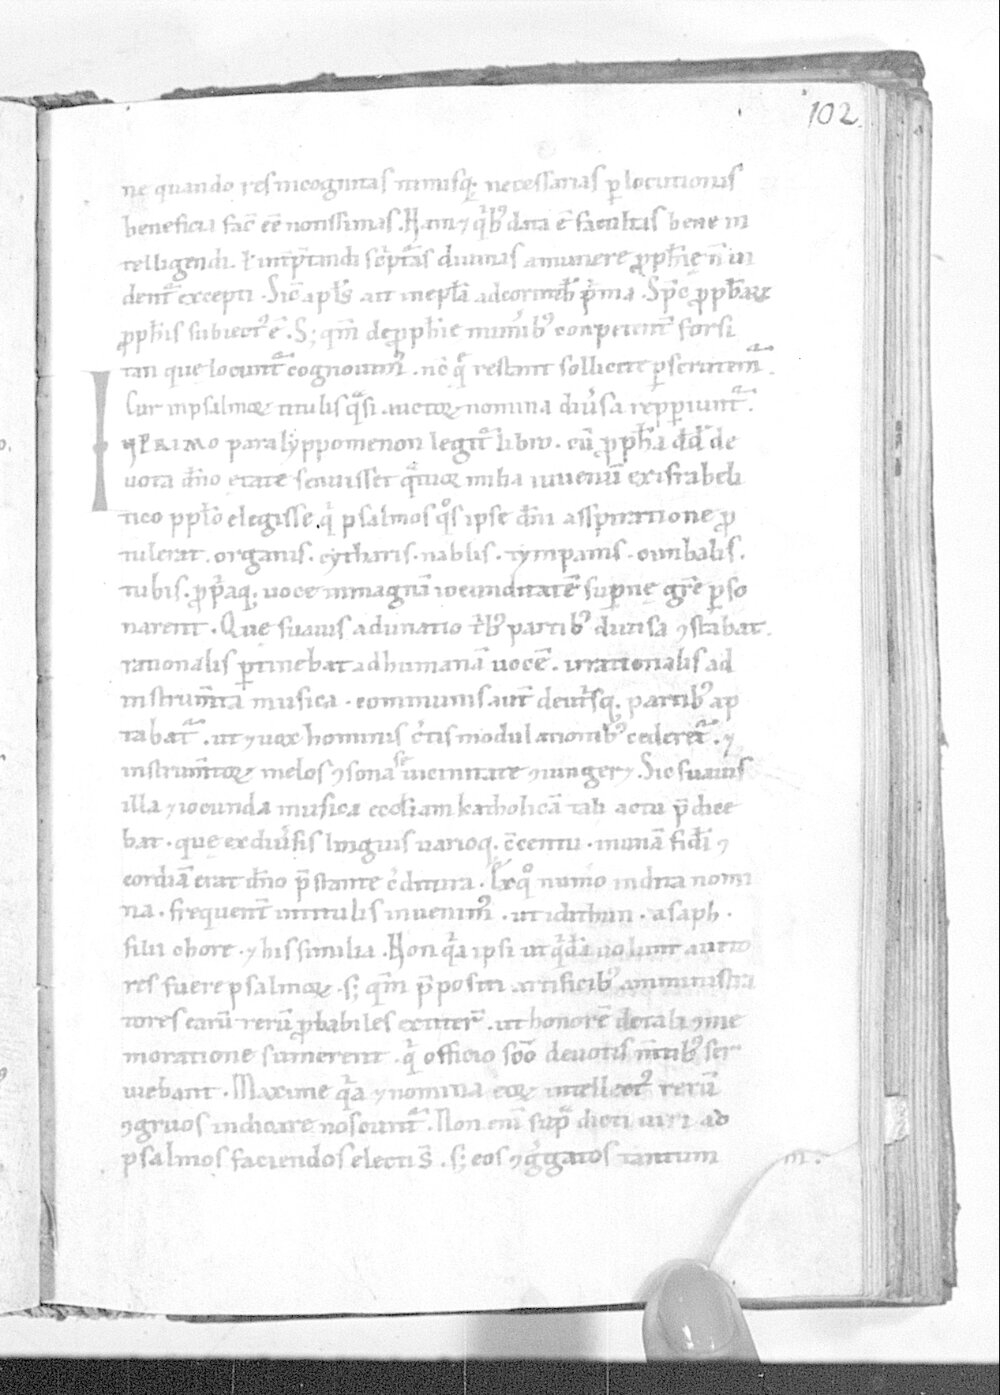 102
ne quando res incognitas nimisq; necessarias ꝑ locutionis
beneficia fac̄ eē notissimas. Nam ⁊ q̇bꝰ data ē facultas bene in
telligendi. ł int̄ꝑtandi sc̄ptās diuinas a munere ꝓph̄ię n̄ ui
dent᷑ excepti. Sic̄ apl̄s ait in epl̄a ad corinth̄ p̄ma. Sp̄c ꝓph̄arꝫ
ꝓph̄is subiectꝰ ē. S; qm̄ de ꝓph̄ie munīibꝰ conpetent᷑ forsi
tan que locunt᷑ cognouimꝰ. nc̄ q̄ restant sollicite ꝑscrutem᷑.
Cur in psalmoꝝ titulis q̄si auctoꝝ nomina diūsa repꝑiunt᷑.
IN PRIMO paralyppomenon legit᷑ libro. cū ꝓph̄a dd̄ de
uota dn̄o etate senuisset q̄tuoꝝ milia iuuenū ex israheli
tico pp̄lo elegisse. q̇ psalmos qͦs ipse dn̄i asspiratione ꝓ
tulerat. organis. cytharis. nablis. tympanis. cimbalis.
tubis. ꝓp̄aq; uoce in magnā iocunditatē supne gr̄e ꝑso
narent. Que suauis adunatio t̄bꝰ partibꝰ diuisa ꝯstabat.
rationalis ꝑtinebat ad humanā uocē. irrationalis ad
instrum̄ta musica. communis aut̄ de ut̄sq; partibꝰ ap
tabat᷑. ut ⁊ uox hominis c̄tis modulationibꝰ cederet᷑. ⁊
instrum̄toꝝ melos ꝯsona se uicinitate ꝯiungeret. Sic suauis
illa ⁊ iocunda musica eccl̄iam katholicā tali actu p̄dice
bat. que ex diūsis linguis uarioq; c̄centu. in unā fidei ꝯ
cordiā erat dn̄o p̄stante c̄ditura. Ex qͦ num̄o indita nomi
na. frequent᷑ in titulis inuenimꝰ. ut idithun. asaph.
filii chore. ⁊ his similia. Non q̄a ipsi ut q̄dā uolunt aucto
res fuere psalmoꝝ. s; qm̄ p̄positi artificibꝰ amministra
tores earū rerū ꝓbabiles extiter̄. ut honorē de tali ꝯme
moratione sumerent. q̇ officio sc̄o deuotis m̄tibꝰ ser
uiebant. Maxime q̄a ⁊ nomina eoꝝ intellectꝰ rerū
ꝯgruos indicare noscunt᷑. Non eni sup̄ dicti uiri ad
psalmos faciendos electi s̄. s; eos ꝯg̊gatos tantum